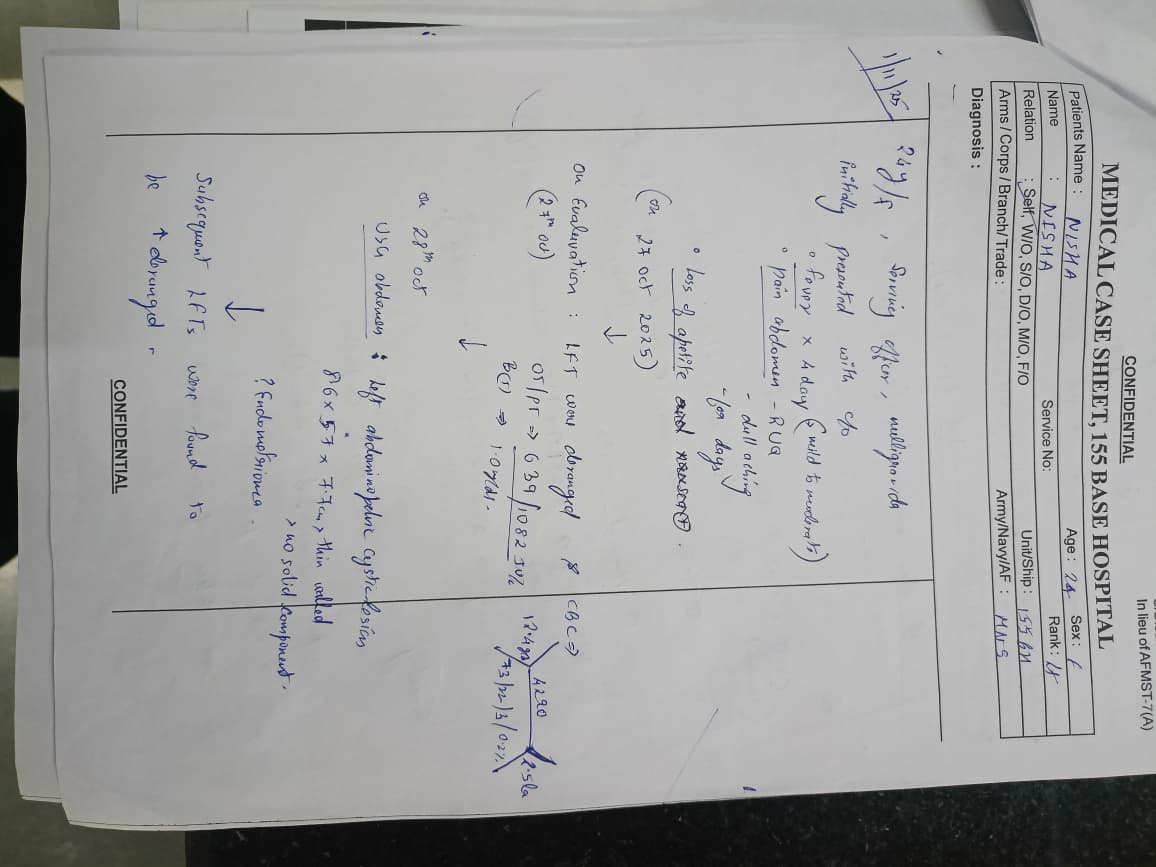 In lieu of AFMST-7(A)
CONFIDENTIAL
MEDICAL CASE SHEET, 155 BASE HOSPITAL
Patients Name : NISHA Age : 24 Sex : F
Name : NISHA Service No: Rank : Lt
Relation : Self, W/O, S/O, D/O, M/O, F/O Unit/Ship : 155 BH
Arms / Corps / Branch/ Trade : Army/Navy/AF : MNS
Diagnosis :
1/11/25
24y/f, Serving officer, nulligravida
initially presented with c/o
• fever x 4 day (mild to moderate)
• pain abdomen - RUQ
- dull aching
- for days
• Loss of apetite
(on 27 oct 2025)
↓
On Evaluvation : LFT were deranged CBC ⇒
(27th oct)
OT/PT ⇒ 639/1082 IU/L
B(T) ⇒ 1.0 g/dl.
12.4 4290 2.5 la
73/22/3/0.2%
↓
on 28th oct
USG abdomen : Left abdominopelvic cystic lesion
86 x 57 x 7.7cm > thin walled
> no solid component.
? Endometrioma.
↓
Subsequent LFTs were found to
be ↑ deranged
CONFIDENTIAL